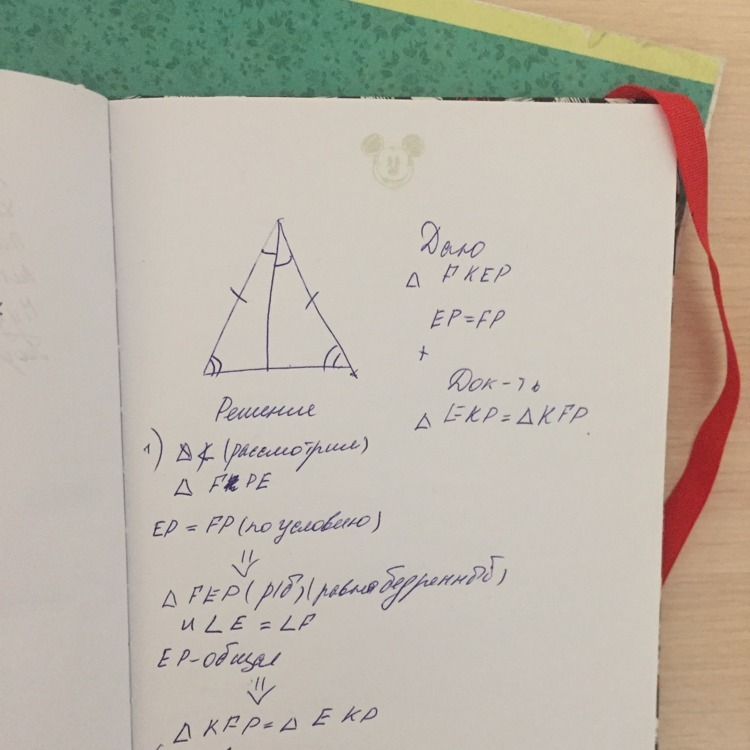 Дано
△ FKEP
EP = FP
Док-ть
△ EKP = △ KFP
Решение
1) (рассмотрим)
△ FPE
EP = FP (по условию)
⇓
△ FEP (р/б) (равнобедренный)
и ∠E = ∠F
EP-общая
⇓
△ KFP = △ EKP